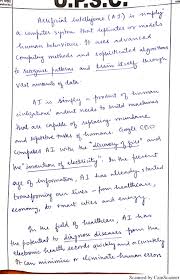 U.P.S.C.
Artificial Intelligence (AI) is simply
a computer system that replicates or models
human behaviour. It uses advanced
computing methods and sophisticated algorithms
to recognise patterns and train itself through
vast amounts of data.
AI is simply a product of human
intelligence and the need to build machines
that are capable of replacing mundane
and repetitive tasks of humans. Google CEO
compares AI with the "discovery of fire" and
the "invention of electricity". In the present
age of information, AI has already started
transforming our lives - from healthcare,
economy, to smart cities and energy.
In the field of healthcare, AI has
the potential to diagnose diseases from the
electronic health records quickly and accurately.
It can minimise or eliminate human errors
Scanned by CamScanner